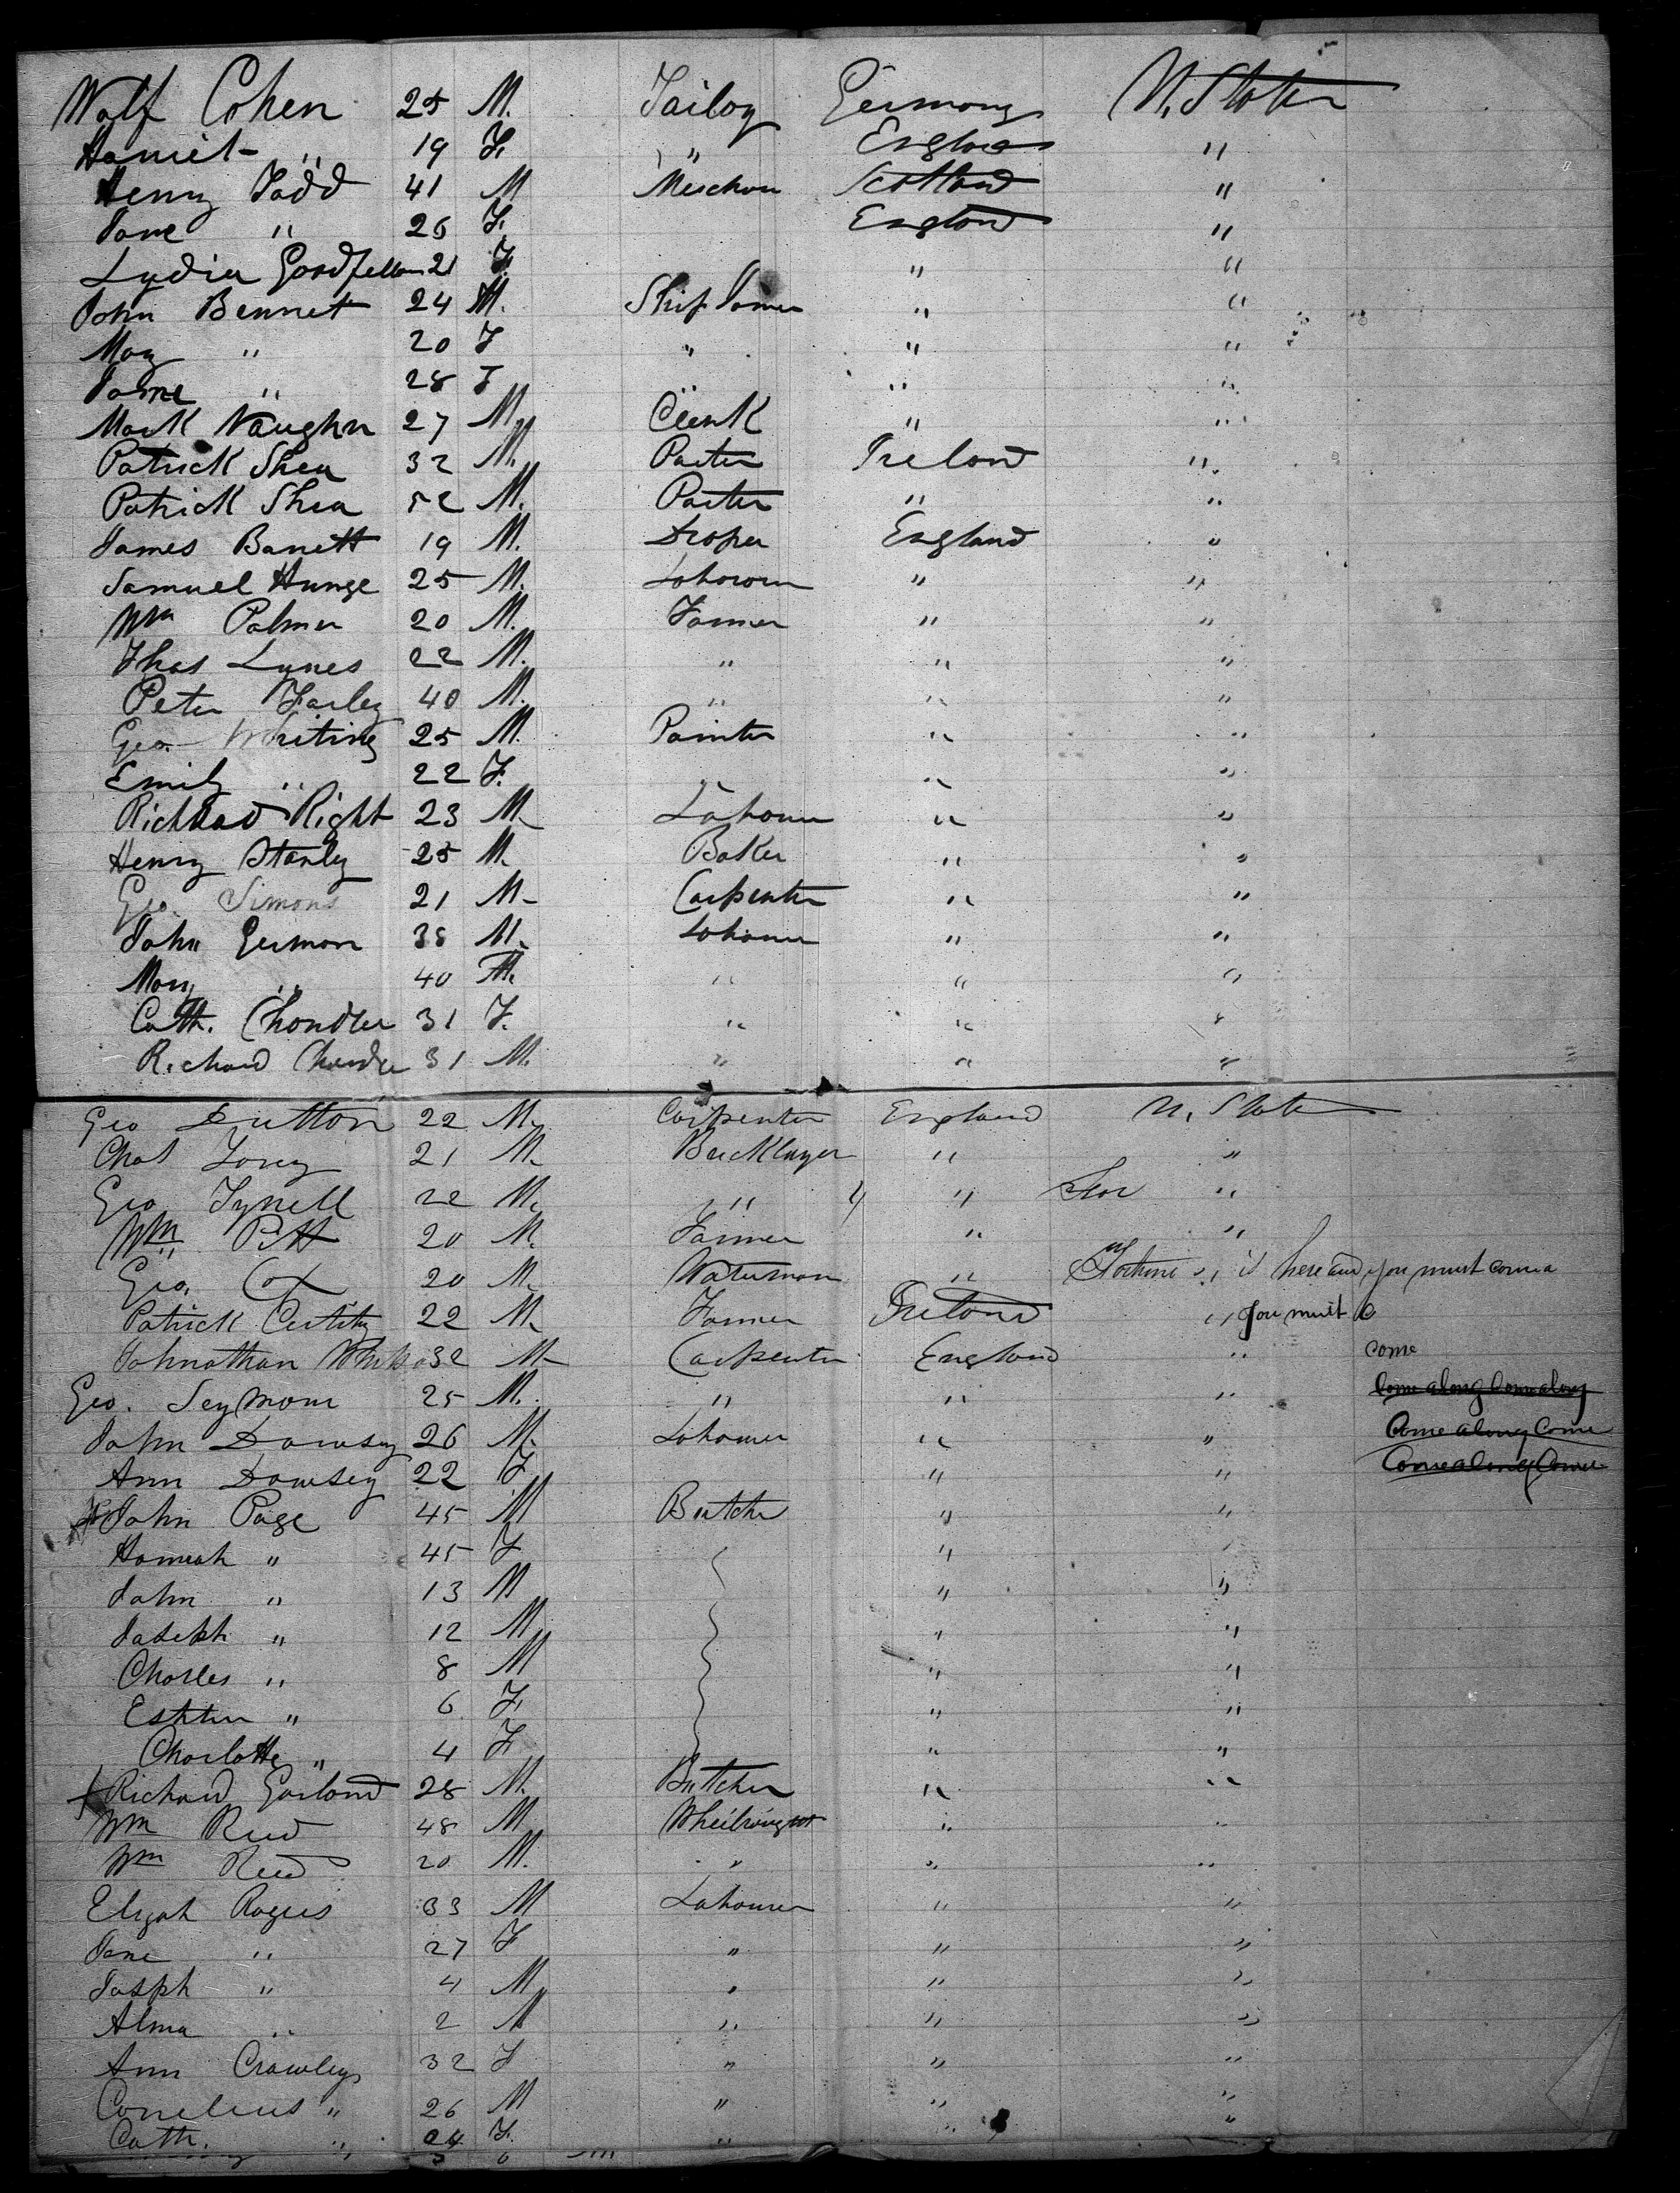 Wolf Cohen 25 M. Tailor Germany U. States
Harriet " 19 F. " England "
Henry Todd 41 M Scotland "
Jane " 26 F. England "
Lydia Goodfellow 21 F. " "
John Bennet 24 M. Ship Joiner " "
May " 20 F " " "
Jane " 28 F " " "
Mark Vaughn 27 M. Clerk " "
Patrick Shea 32 M. Porter Ireland "
Patrick Shea 52 M. Porter " "
James Barrett 19 M. Draper England "
Samuel Hunge 25 M. Labourer " "
Wm Palmer 20 M. Farmer " "
Thos Lynes 22 M. " " "
Peter Farley 40 M. " " "
Geo. Whiting 25 M. Painter " "
Emily " 22 F. " " "
Richard Right 23 M. Labourer " "
Henry Stanly 25 M. Baker " "
Geo. Simons 21 M. Carpenter " "
John German 38 M. Labourer " "
Mary " 40 " " "
Cath. Chandler 31 F. " " "
Richard Chandler 31 M. " " "
Geo Dutton 22 M. Carpenter England U. States
Chas 21 M. Bricklayer " "
Geo Tyrell 22 M. " " "
Wm Pitt 20 M. Farmer " "
Geo. Cox 20 M. Waterman " Fortune " is here and you must come a
Patrick 22 M. Farmer Ireland " you must c
Johnathan 32 M. Carpenter England " come
Geo. Seymour 25 M. " " " Come along Come along
John Dowsey 26 M. Labourer " " Come along Come
Ann Dowsey 22 F " " Come along Come
John Page 45 M Butcher " "
Hannah " 45 F " "
John " 13 M " "
Joseph " 12 M " "
Charles " 8 M " "
Esther " 6 F " "
Charlotte " 4 F " "
Richard Garland 28 M. Butcher " "
Wm Reed 48 M Wheelright " "
Wm Reed 20 M. " " "
Elijah Rogers 33 M Labourer " "
Jane " 27 F " " "
Joseph " 4 M " " "
Alma " 2 M " " "
Ann Crawley 32 F " " "
Cornelius " 26 M " " "
Cath. " 24 F. " " "